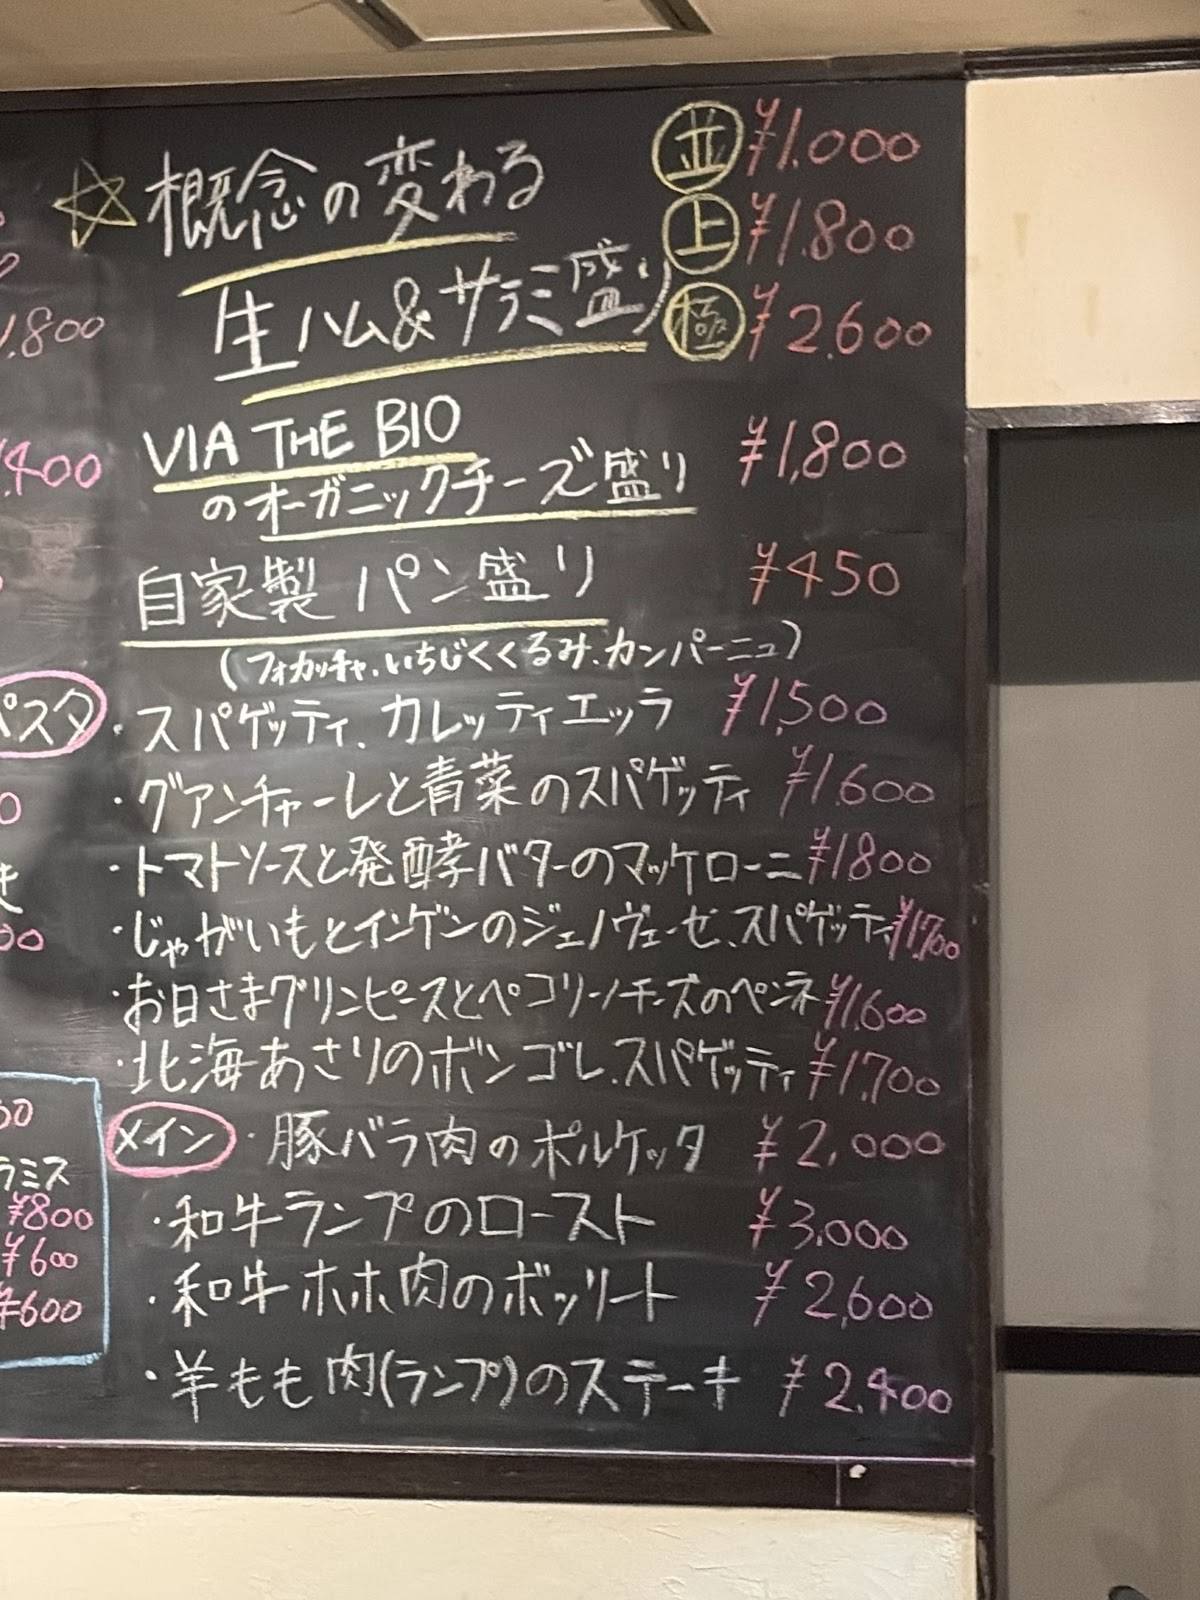 ☆概念の変わる
生ハム&サラミ盛り
並 ¥1.000
上 ¥1.800
極 ¥2.600
VIA THE BIO
のオーガニックチーズ盛り ¥1,800
自家製パン盛り ¥450
(フォカッチャ、いちじくくるみ、カンパーニュ)
パスタ
・スパゲッティ、カレッティエッラ ¥1,500
・グアンチャーレと青菜のスパゲッティ ¥1.600
・トマトソースと発酵バターのマッケローニ ¥1800
・じゃがいもとインゲンのジェノヴェーゼ、スパゲッティ ¥1,700
・お日さまグリンピースとペコリーノチーズのペンネ ¥1,600
・北海あさりのボンゴレ、スパゲッティ ¥1,700
メイン ・豚バラ肉のポルケッタ ¥2,000
・和牛ランプのロースト ¥3,000
・和牛ホホ肉のボッリート ¥2,600
・羊もも肉(ランプ)のステーキ ¥2.400
.800
.400
00
ラミス
¥800
¥600
¥600